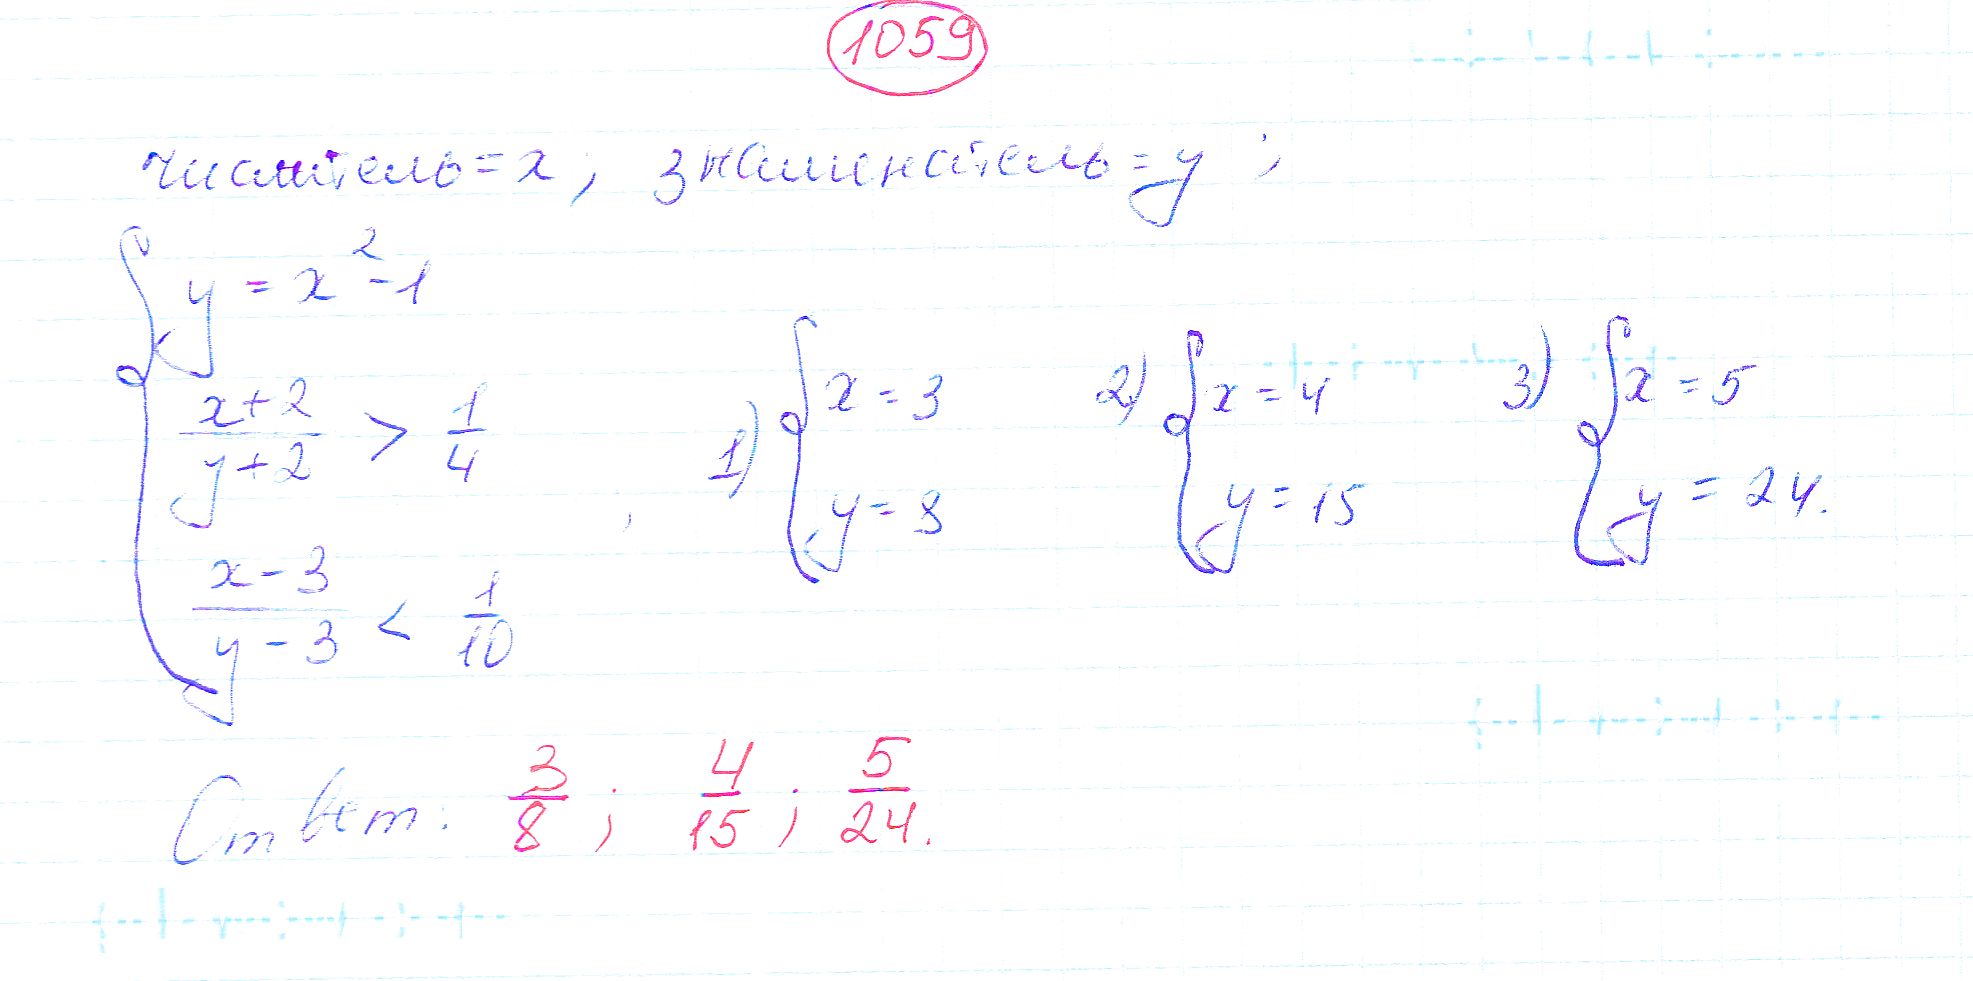 1059
числитель = x; знаменатель = y;
y = x² - 1
(x+2)/(y+2) > 1/4
(x-3)/(y-3) < 1/10
; 1) { x = 3 y = 8 2) { x = 4 y = 15 3) { x = 5 y = 24.
Ответ: 3/8; 4/15; 5/24.